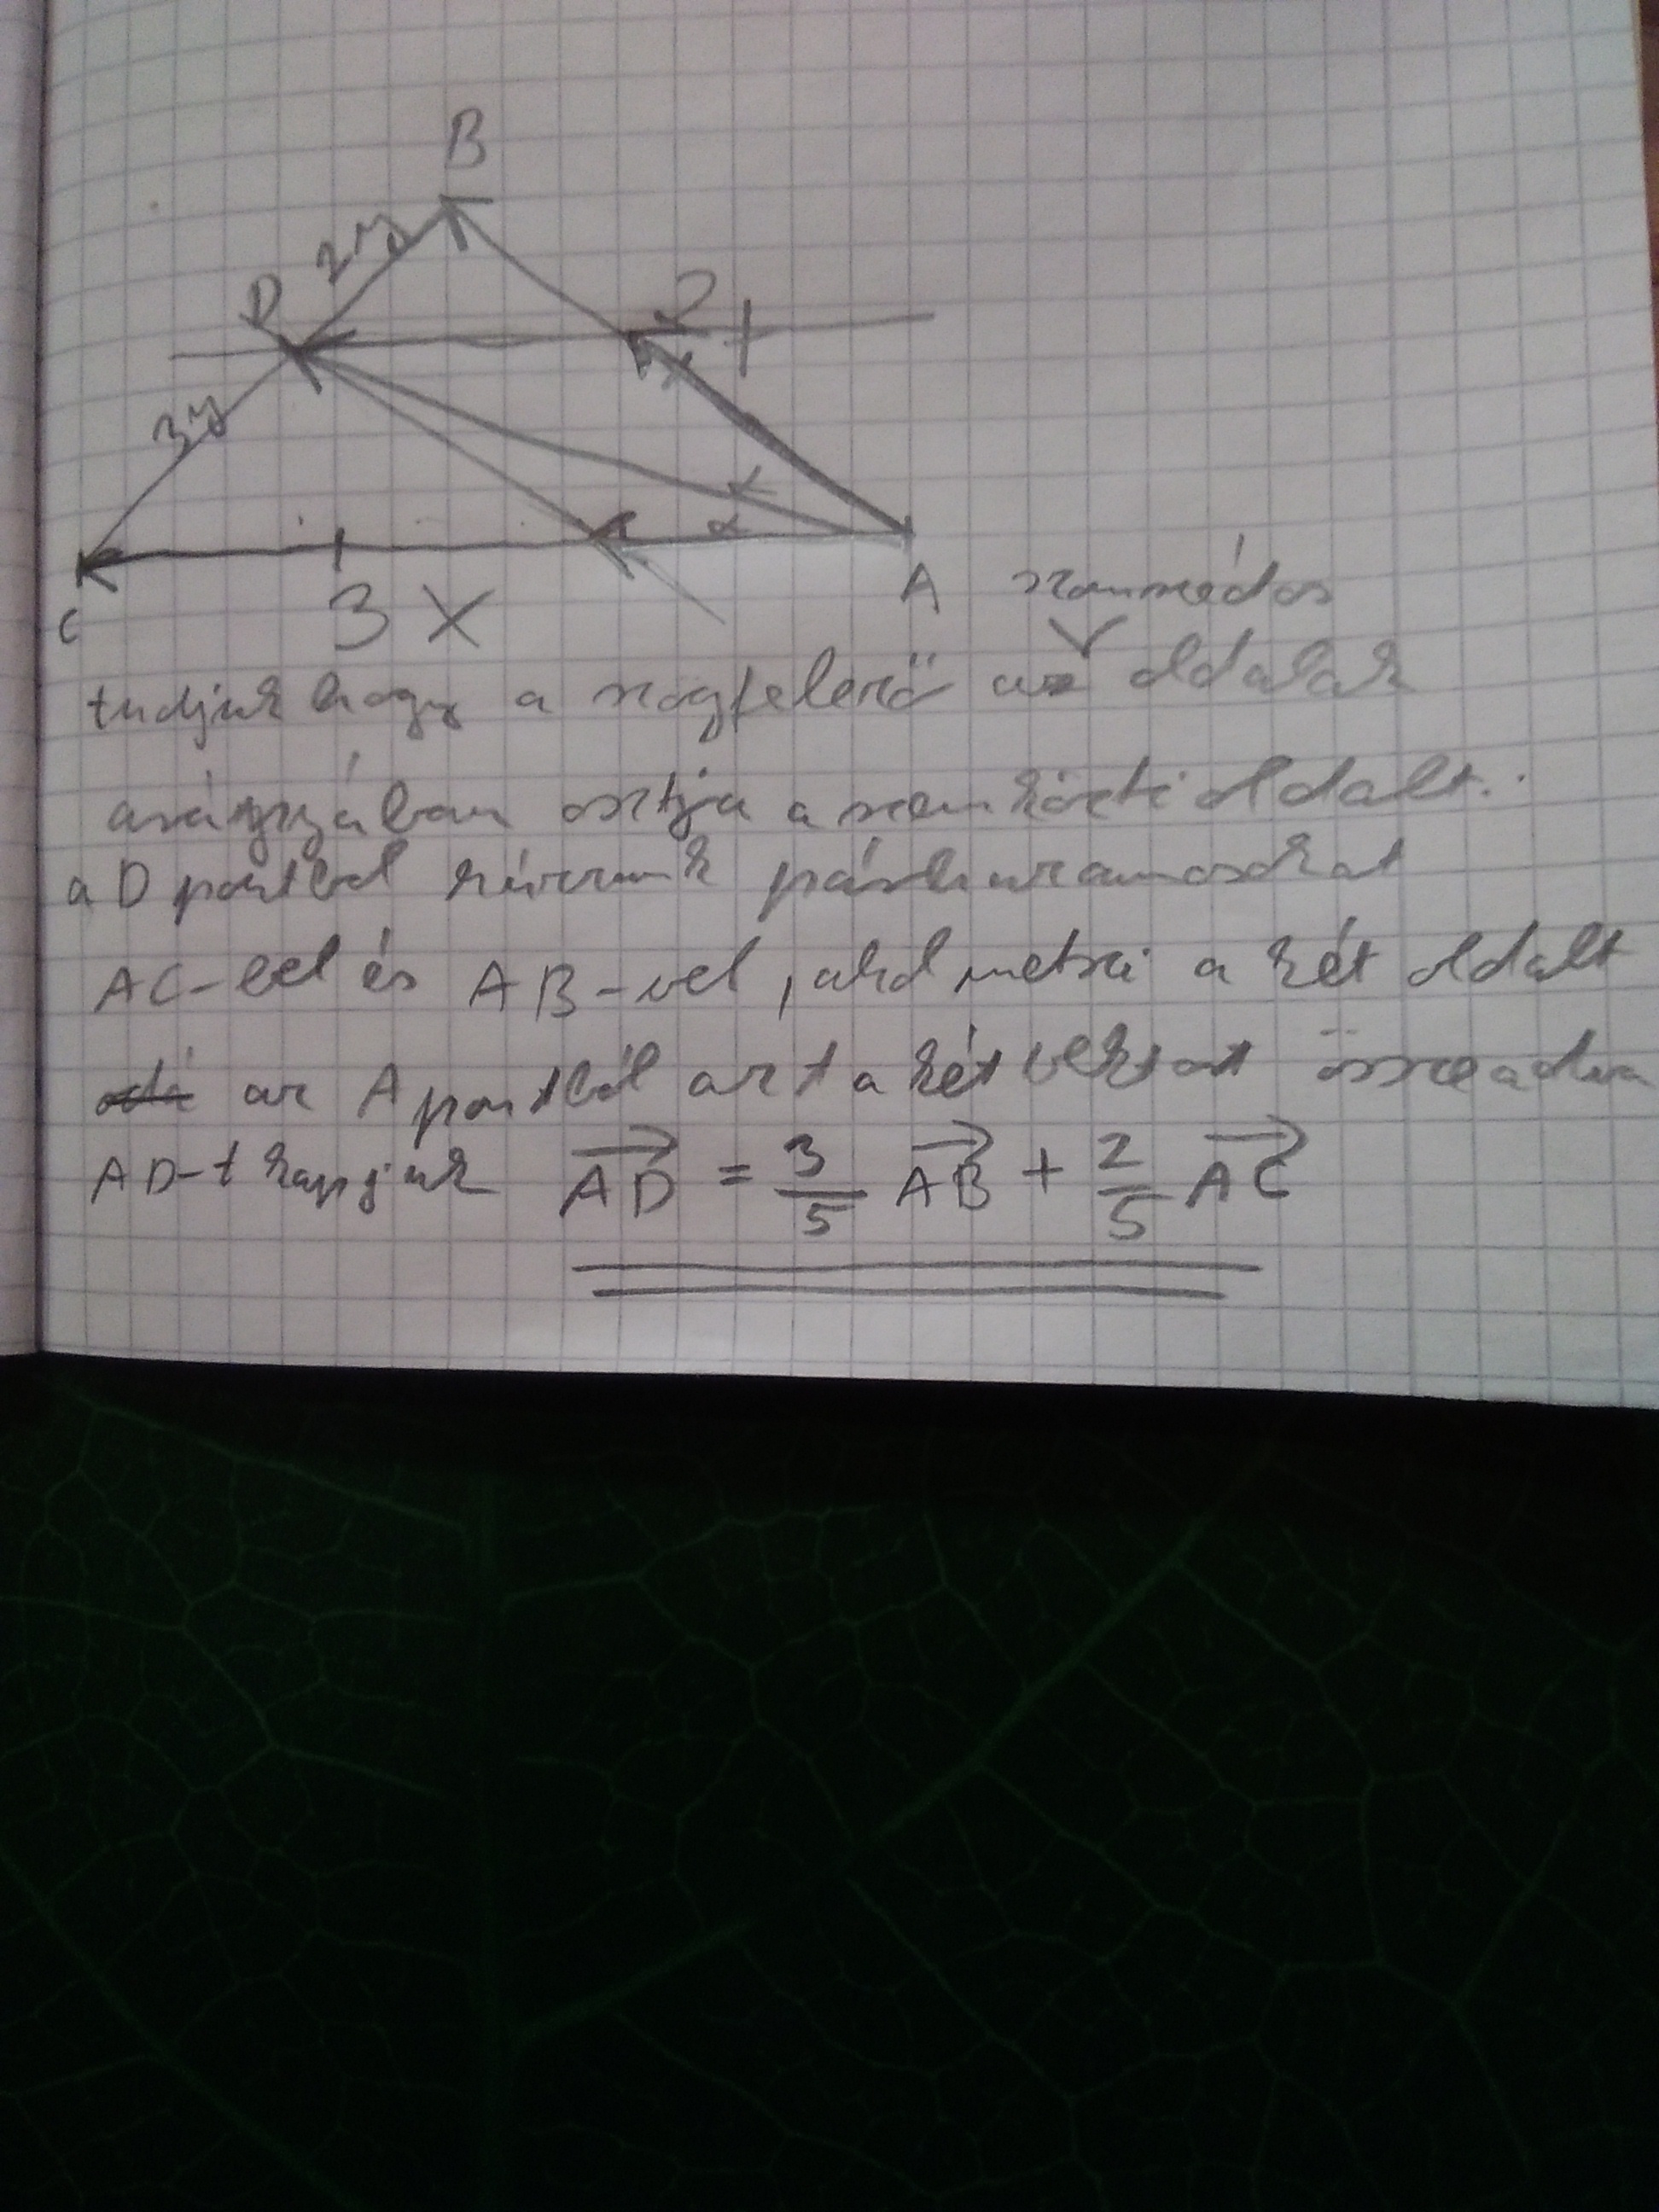 B
2y
D
2x
3y
α
α
C
3x
A
szomszédos
tudjuk hogy a szögfelező az oldalak
arányában osztja a szemközti oldalt.
a D pontból húzunk párhuzamosokat
AC-vel és AB-vel, ahol metszi a két oldalt
az A pontból azt a két vektort összeadva
AD-t kapjuk AD = 3/5 AB + 2/5 AC